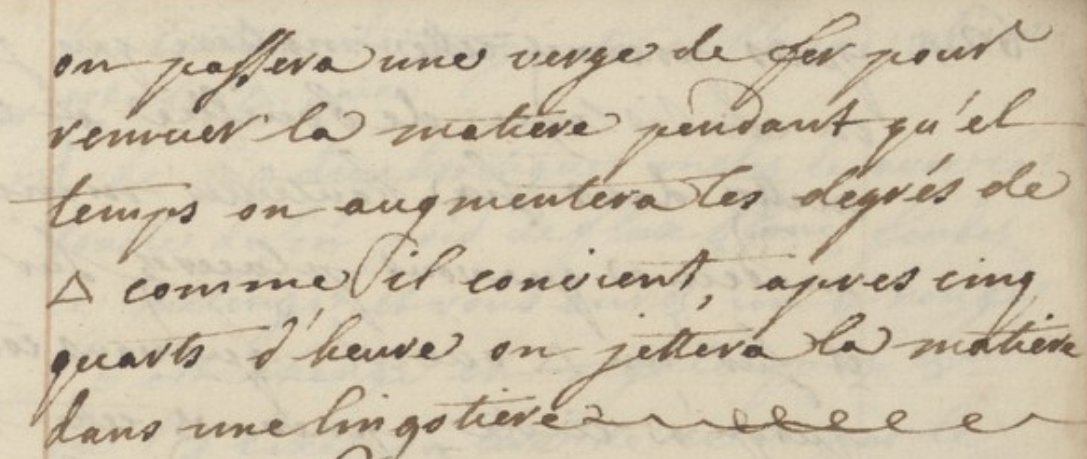 on passera une verge de fer pour
remuer la matiere pendant qu'el
temps on augmentera les dégrés de
△ comme il convient, apres cinq
quarts d'heure on jéttera la matiere
dans une lingotiere